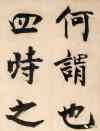 何謂也
四時之